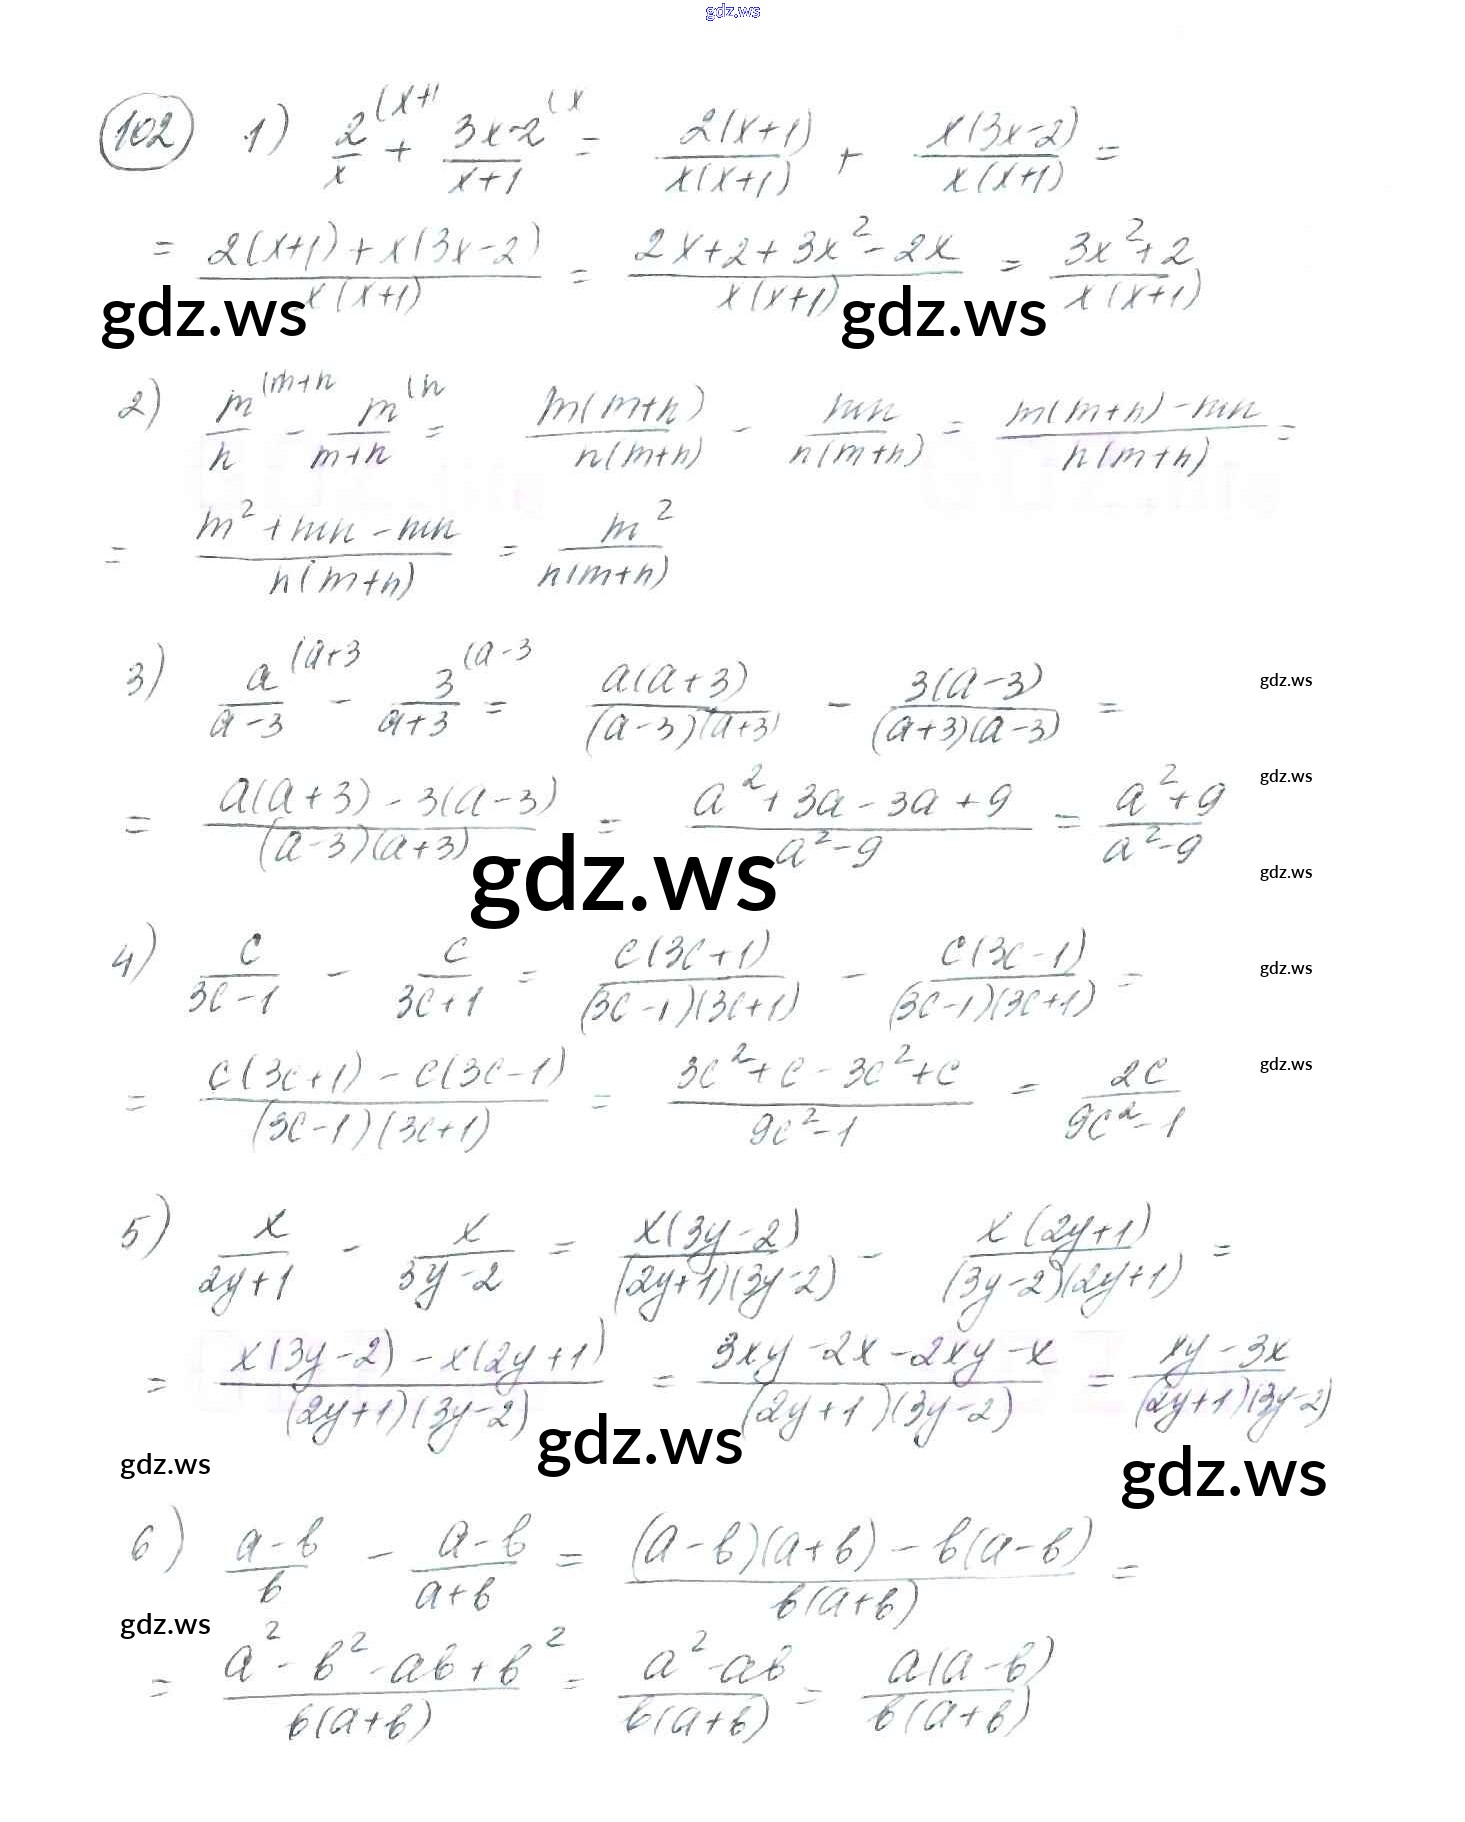 gdz.ws
102 1) 2/x (x+1 + (3x-2)/(x+1) (x = 2(x+1)/(x(x+1)) + x(3x-2)/(x(x+1)) =
= (2(x+1)+x(3x-2))/(x(x+1)) = (2x+2+3x²-2x)/(x(x+1)) = (3x²+2)/(x(x+1))
gdz.ws gdz.ws
2) m/n (m+n - m/(m+n) (n = m(m+n)/(n(m+n)) - mn/(n(m+n)) = (m(m+n)-mn)/(n(m+n)) =
= (m²+mn-mn)/(n(m+n)) = m²/(n(m+n))
3) a/(a-3) (a+3 - 3/(a+3) (a-3 = a(a+3)/((a-3)(a+3)) - 3(a-3)/((a+3)(a-3)) =
gdz.ws
= (a(a+3)-3(a-3))/((a-3)(a+3)) = (a²+3a-3a+9)/(a²-9) = (a²+9)/(a²-9)
gdz.ws
gdz.ws
gdz.ws
4) c/(3c-1) - c/(3c+1) = c(3c+1)/((3c-1)(3c+1)) - c(3c-1)/((3c-1)(3c+1)) =
gdz.ws
= (c(3c+1)-c(3c-1))/((3c-1)(3c+1)) = (3c²+c-3c²+c)/(9c²-1) = 2c/(9c²-1)
gdz.ws
5) x/(2y+1) - x/(3y-2) = x(3y-2)/((2y+1)(3y-2)) - x(2y+1)/((3y-2)(2y+1)) =
= (x(3y-2)-x(2y+1))/((2y+1)(3y-2)) = (3xy-2x-2xy-x)/((2y+1)(3y-2)) = (xy-3x)/((2y+1)(3y-2))
gdz.ws gdz.ws gdz.ws
6) (a-b)/b - (a-b)/(a+b) = ((a-b)(a+b)-b(a-b))/(b(a+b)) =
gdz.ws
= (a²-b²-ab+b²)/(b(a+b)) = (a²-ab)/(b(a+b)) = a(a-b)/(b(a+b))